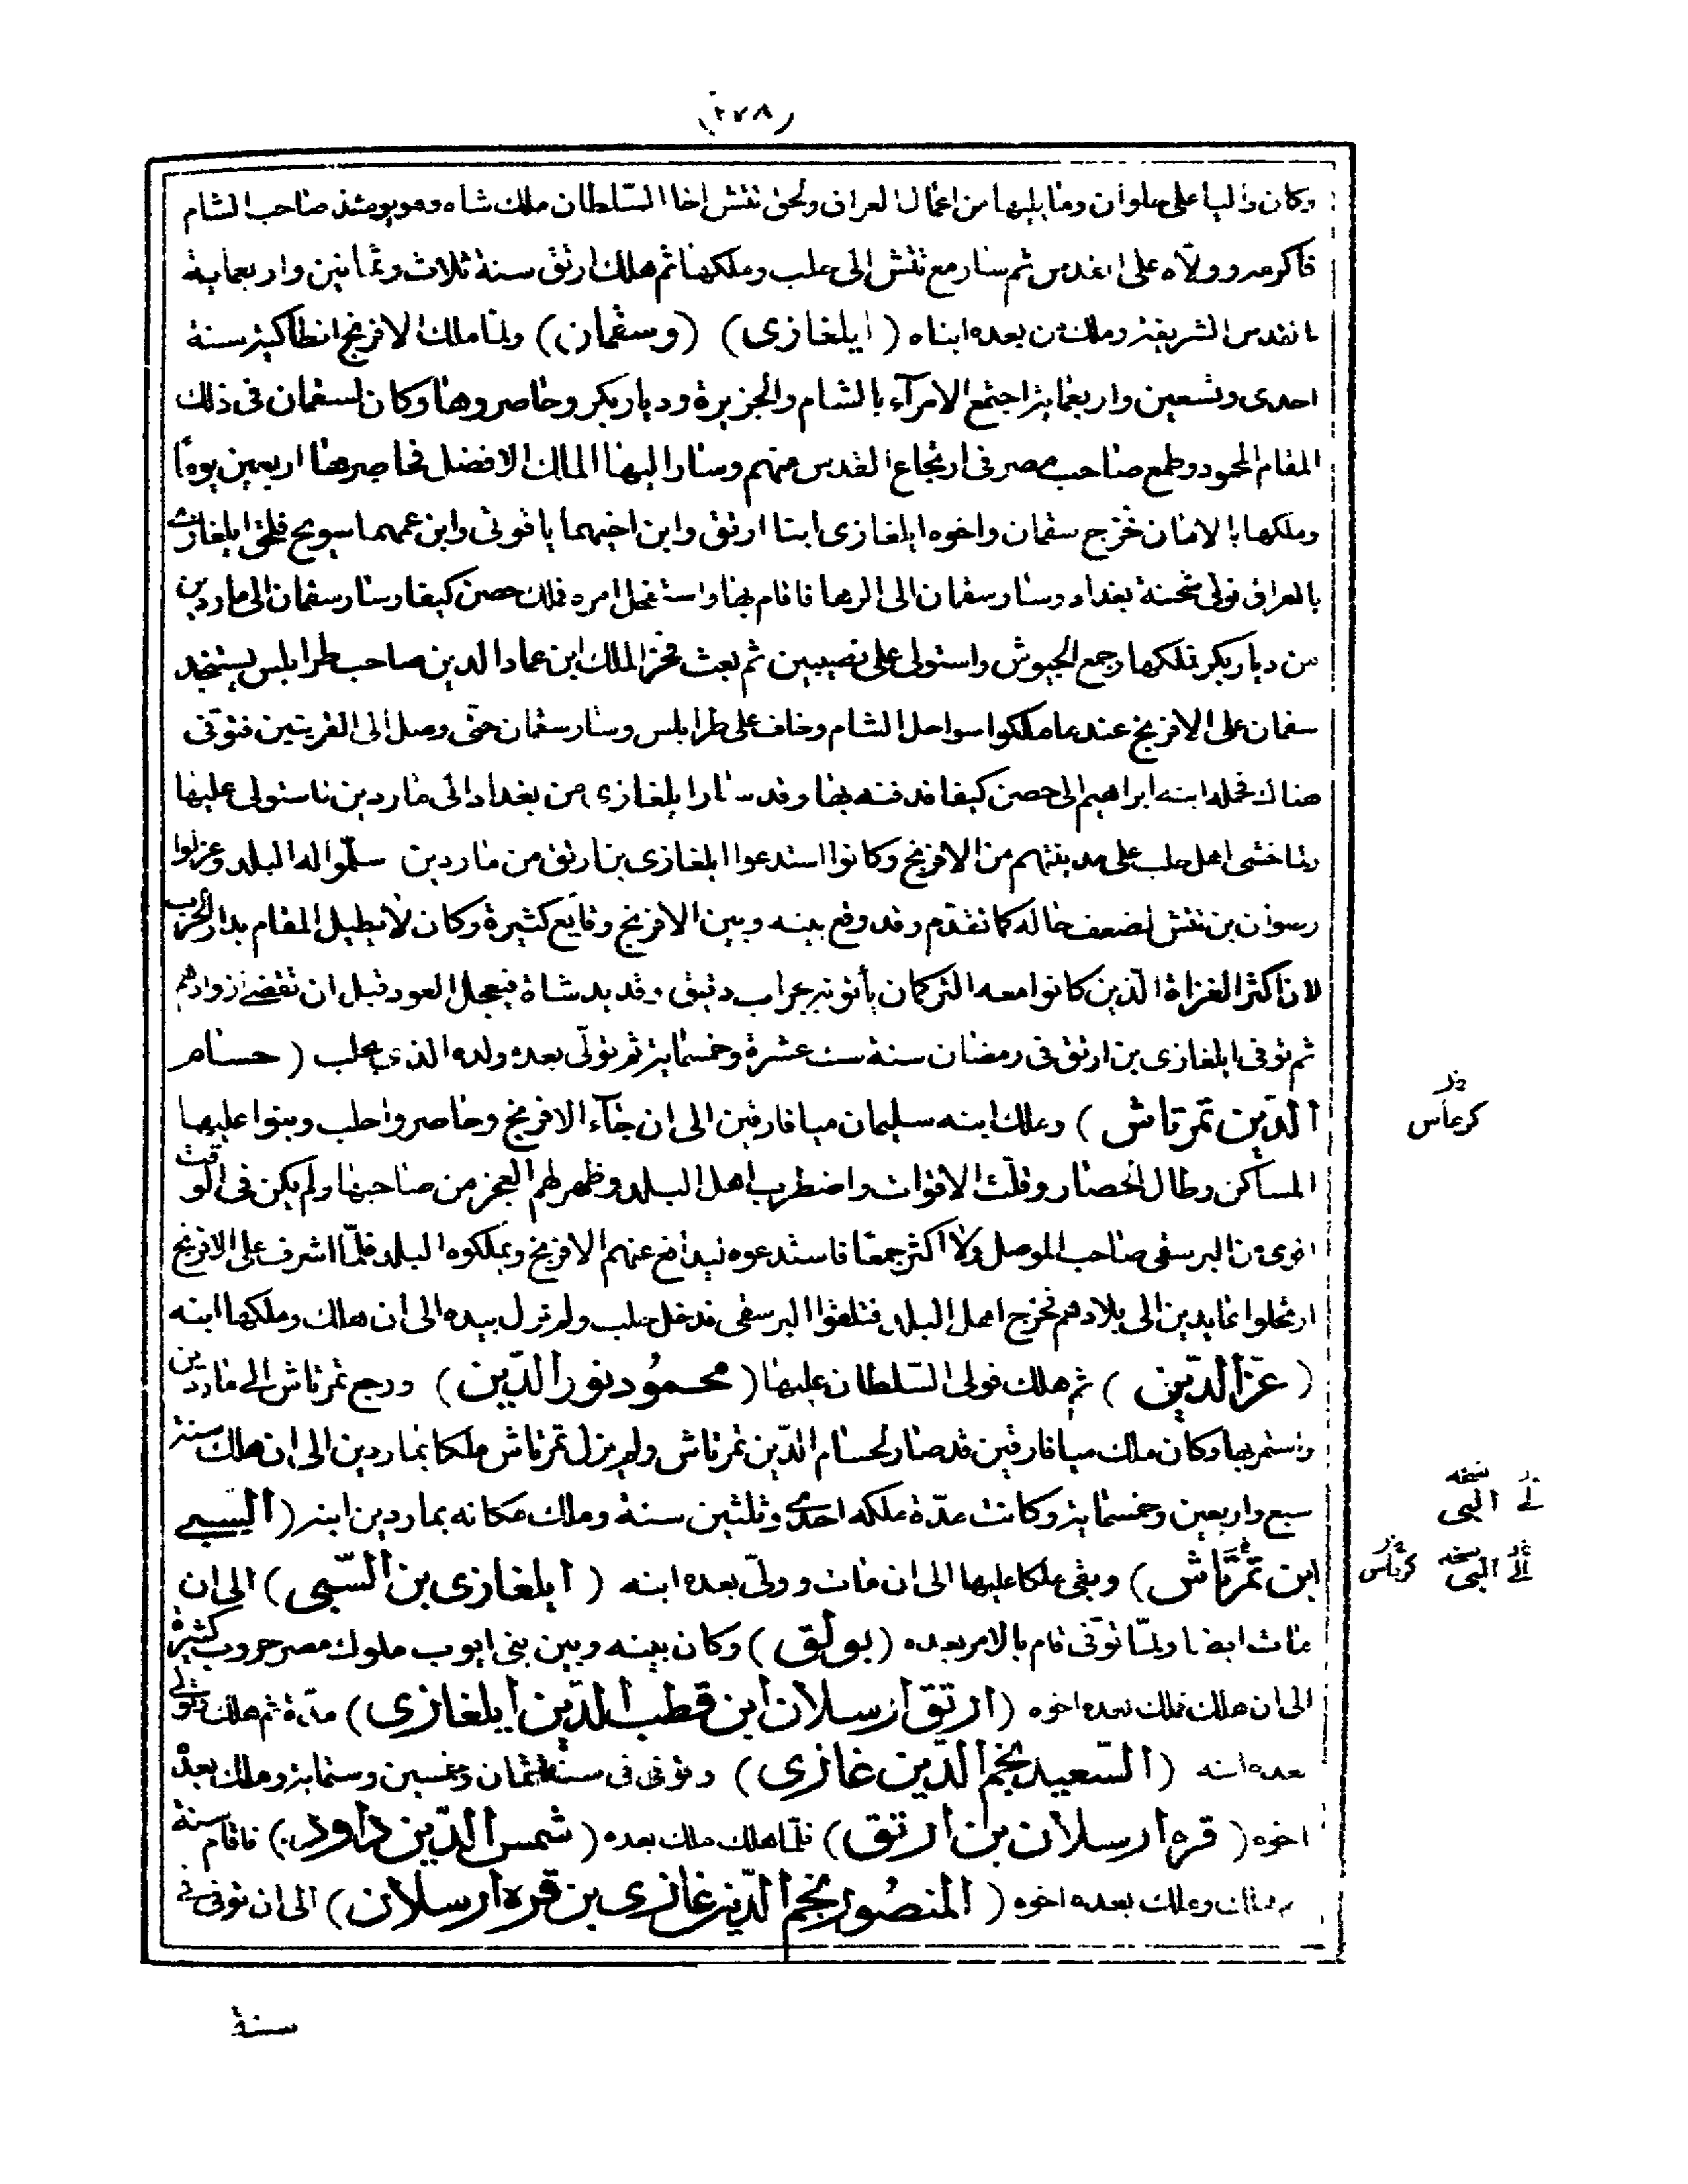 (٢٧٨)
وكان واليا على حلوان وما يليها من اعمال العراق ولحق تتش اخا السّلطان ملك شاه وهو يومئذ صاحب الشام
فاكرمه وولاّه على القدس ثم سار مع تتش الى حلب وملكها ثم هلك ارتق سنة ثلاث وثمانين واربعماية
بالقدس الشريفة وملك من بعده ابناه (ايلغازى) (وسقمان) ولما ملك الافرنج انطاكية سنة
احدى وتسعين واربعماية اجتمع الامرآء بالشام والجزيرة وديار بكر وحاصروها وكان لسقمان فى ذلك
المقام المحمود وطمع صاحب مصر فى ارتجاع القدس منهم وسار اليها المالك الافضل فحاصرها اربعين يوما
وملكها بالامان فخرج سقمان واخوه ايلغازى ابنا ارتق وابن اخيهما ياقوتى وابن عمهما سويج فلحق ايلغازى
بالعراق فولى شحنة بغداد وسار سقمان الى الرها فاقام بها واستفحل امره فملك حصن كيفا وسار سقمان الى ماردين
من ديار بكر فملكها وجمع الجيوش واستولى على نصيبين ثم بعث فخر الملك ابن عماد الدين صاحب طرابلس يستنجد
سقمان على الافرنج عندما ملكوا سواحل الشام وخاف على طرابلس وسار سقمان حتى وصل الى القريتين فتوّفى
هناك فحمله ابنه ابراهيم الى حصن كيفا فدفنه بها وقد سار ايلغازى من بغداد الى ماردين فاستولى عليها
ولما خشى اهل حلب على مدينتهم من الافرنج وكانوا استدعوا ايلغازى بن ارتق من ماردين سلّمواله البلد وعزلوا
رسوان بن تتش لضعف حاله كما تقدّم وقد وقع بينه وبين الافرنج وقايع كثيرة وكان لا يطيل المقام بدار الحرب
لان اكثر الغزاة الّذين كانوا معه التركمان يأتونه بجراب دقيق وقديد شاة فيعجل العود قبل ان تقضى ازوادهم
ثم توفى ايلغازى بن ارتق فى رمضان سنة ست عشرة وخمسماية ثم تولّى بعده ولده الذى بحلب (حسام
الدّين تمرتاش) وملك ابنه سليمان ميافارقين الى ان جآء الافرنج وحاصروا حلب وبنوا عليها
المساكن وطال الحصار وقلّت الاقوات واضطرب اهل البلد وظهر لهم العجز من صاحبها ولم يكن فى الوقت
اقوى من البرسقى صاحب الموصل ولا اكثر جمعا فاستدعوه ليدافع عنهم الافرنج ويملكوه البلد فلمّا اشرف على الافرنج
ارتحلوا عايدين الى بلادهم فخرج اهل البلد فتلقوا البرسقى فدخل حلب ولم تزل بيده الى ان هلك وملكها ابنه
(عزّ الدّين) ثم هلك فولى السّلطان عليها (محمود نور الدّين) ورجع تمرتاش الى ماردين
واستمر بها وكان ملك ميافارقين قد صار لحسام الدّين تمرتاش ولم يزل تمرتاش ملكا بماردين الى ان هلك سنة
سبع واربعين وخمسماية وكانت مدّة ملكه احدى وثلثين سنة وملك مكانه بماردين ابنه (السبى
ابن تمرتاش) وبقى ملكا عليها الى ان مات وولىّ بعده ابنه (ايلغازى بن السّبى) الى ان
مات ايضا ولمّا توّفى قام بالامر بعده (بولق) وكان بينه وبين بنى ايوب ملوك مصر حروب كثيرة
الى ان هلك فملك بعده اخوه (ارتق ارسلان ابن قطب الدّين ايلغازى) مدّة ثم هلك وتولى
بعده ابنه (السّعيد نجم الدّين غازى) وتوفى فى سنة ثمان وخمسين وستماية وملك بعده
اخوه (قره ارسلان بن ارتق) فلمّا هلك ملك بعده (شمس الدّين داود) فاقام سنة
وهلك وملك بعده اخوه (المنصور نجم الدّين غازى بن قره ارسلان) الى ان توفى فى
سنة